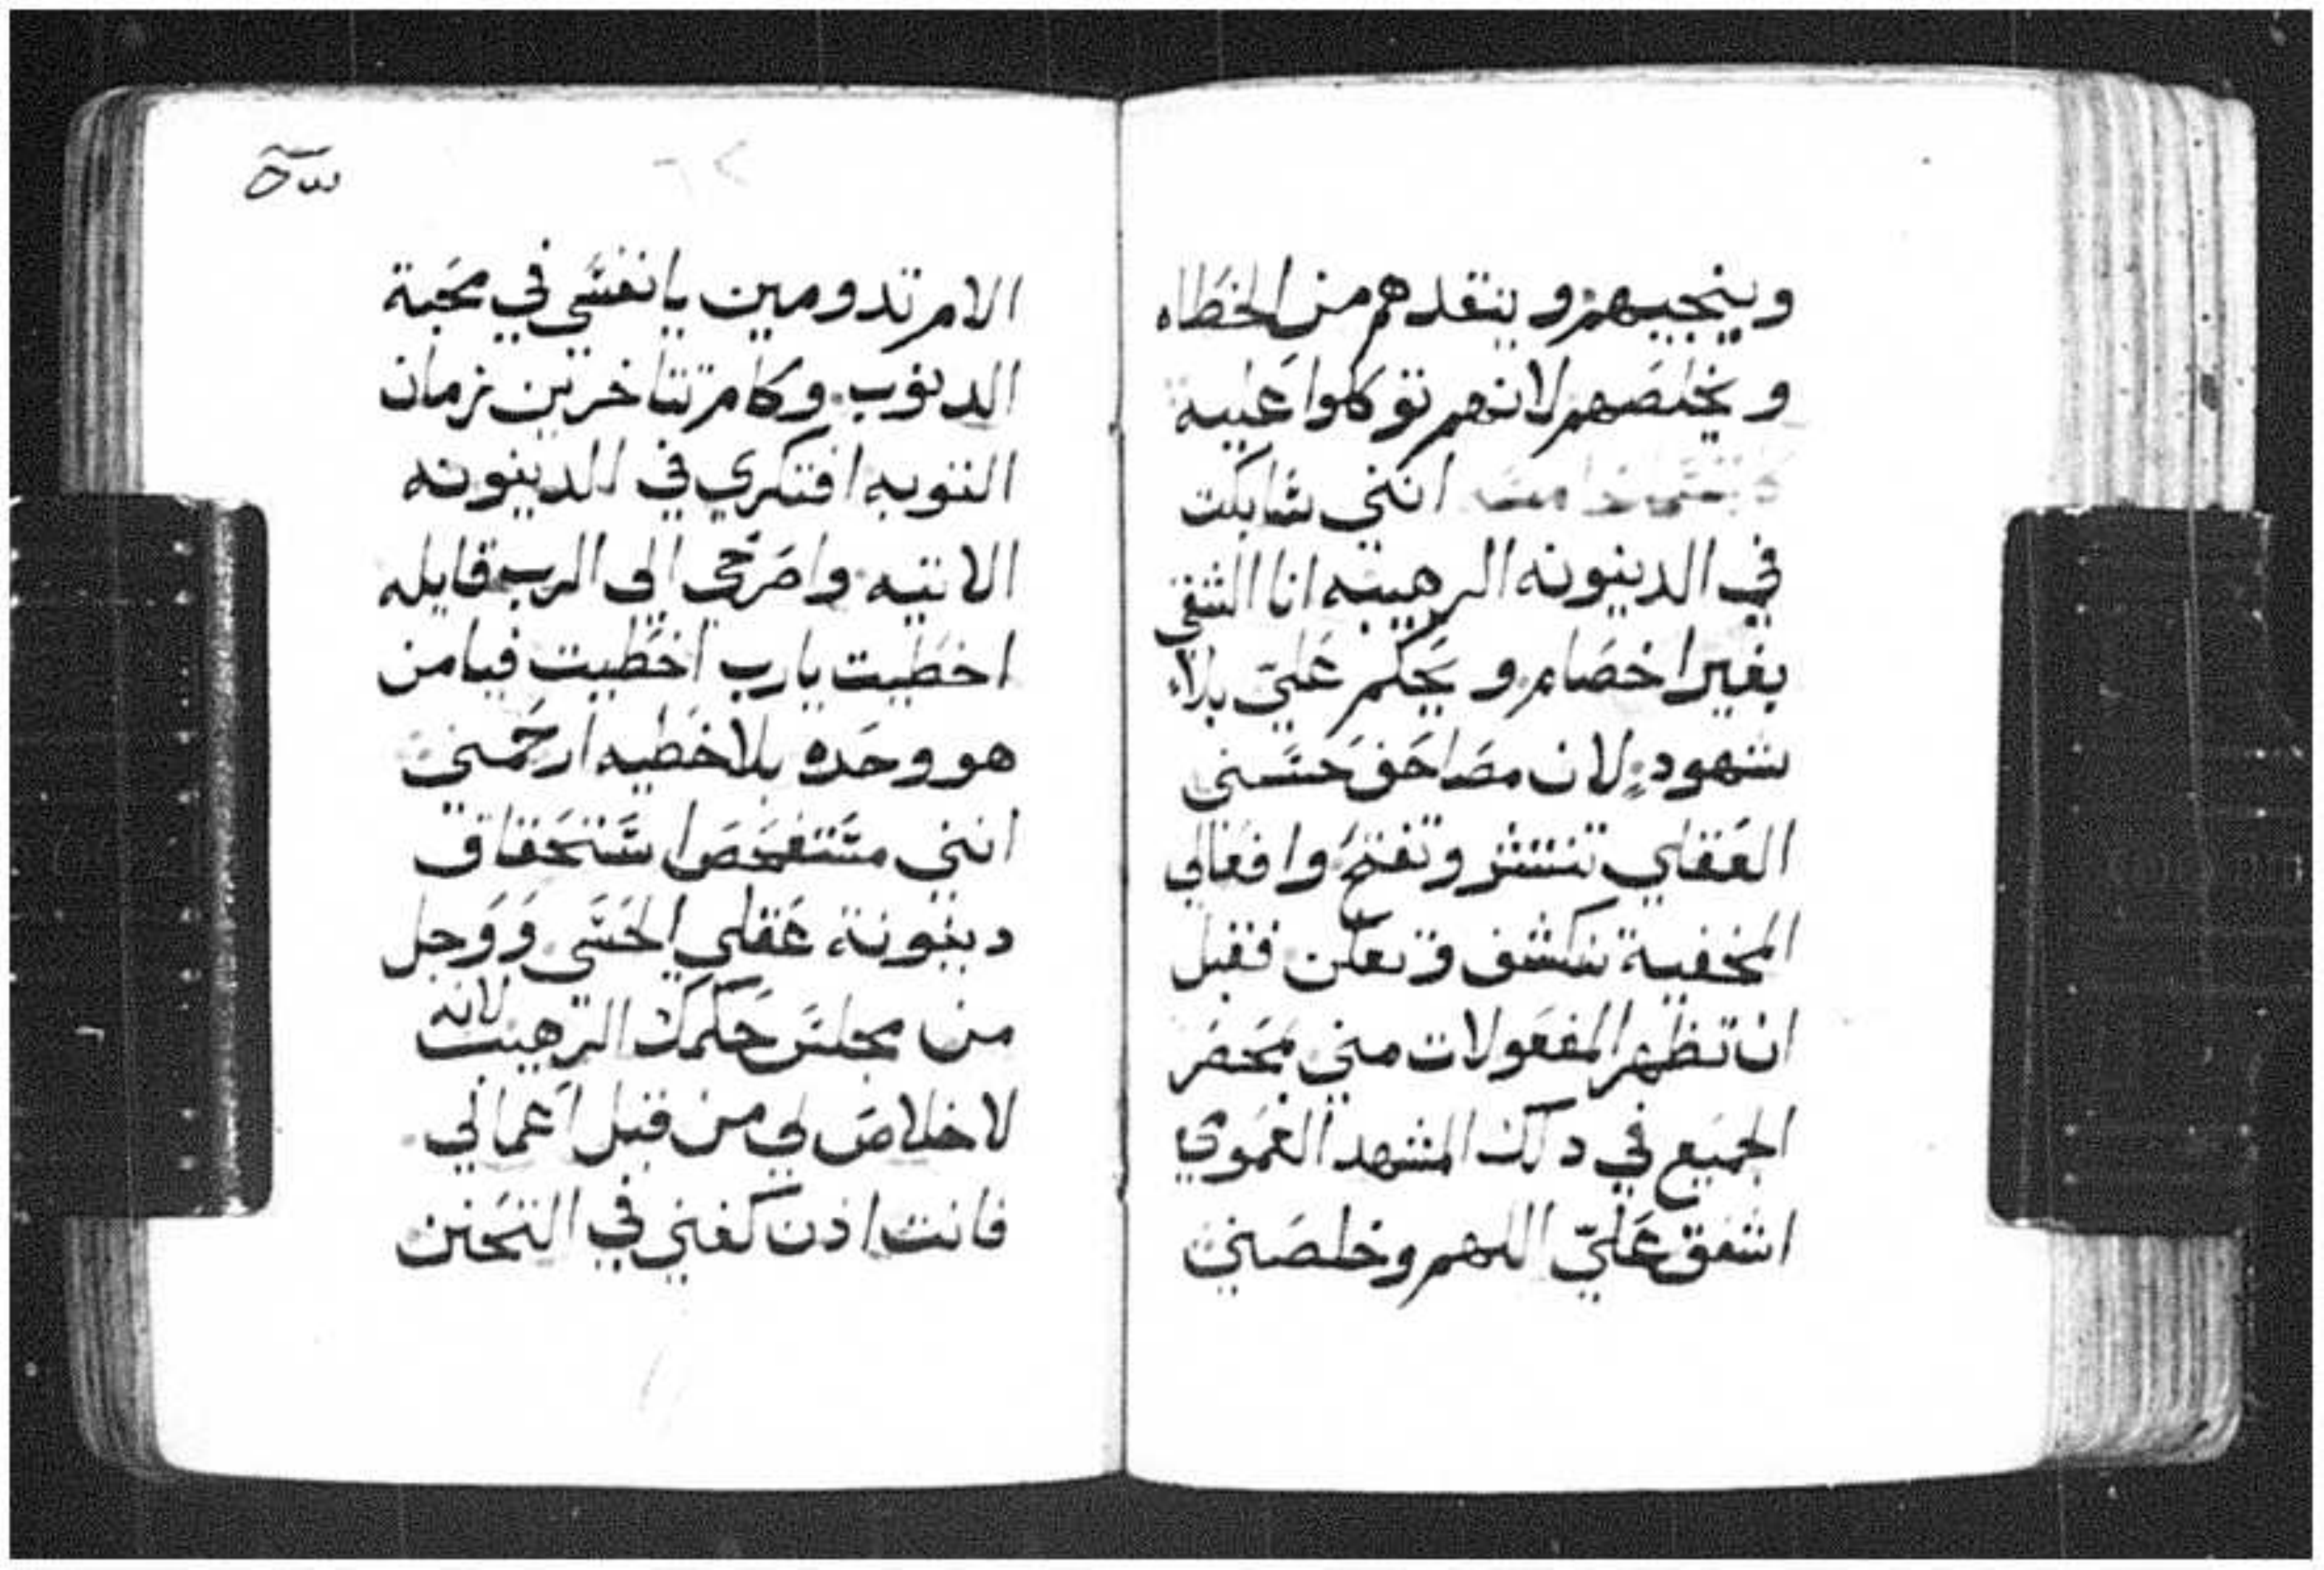 وينجيهم وينقدهم من الخطاه
ويخلصهم لانهم توكلوا عليه
انني شابكت
في الدينونه الرهيبه انا الشقي
بغير اخصام ويحكم عليّ بلا
شهود لان مصاحف حسني
العقلي تنتشر وتفتح وافعالي
المخفية تنكشف وتعلن فقبل
ان تظهر المفعولات مني بمحضر
الجميع في دلك المشهد العموي
اشفق عليّ اللهم وخلصني
الامر تدومين يا نفسي في محبة
الدنوب وكامر تتاخرين زمان
التوبه افتكري في الدينونه
الاتيه واصرخي الي الرب قايله
اخطيت يارب اخطيت فيامن
هو وحده بلا خطيه ارحمني
انني مستفحص استحقاق
دينونة عقلي الحسي ووجل
من مجلس حكمك الرهيب لانه
لا خلاص لي من قبل اعمالي
فانت ادن كفني في التحنن